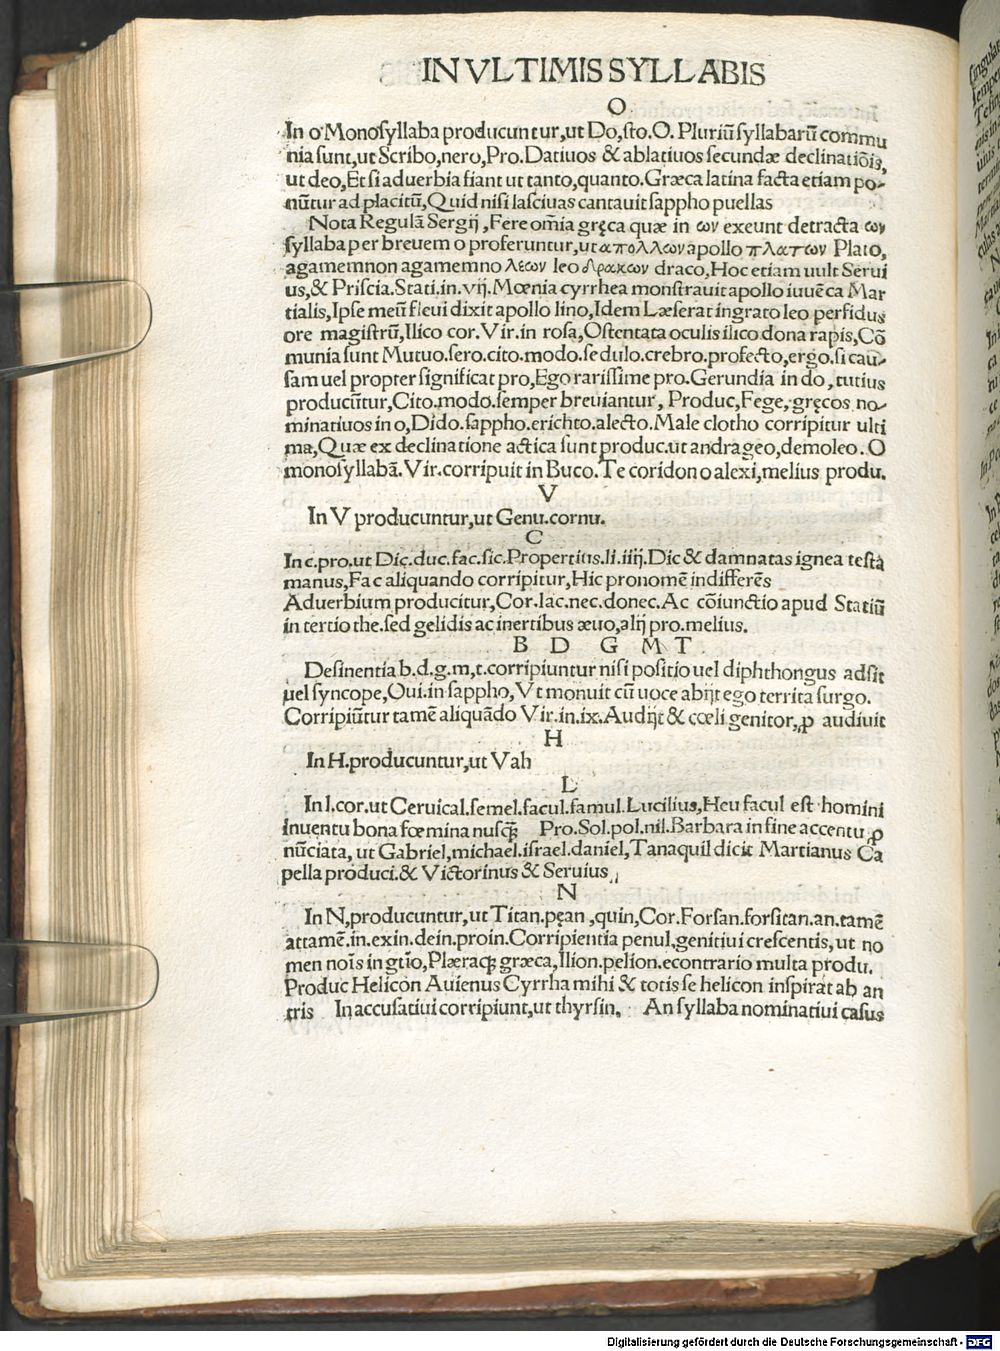 IN VLTIMIS SYLLABIS
O
In o Monosyllaba producuntur,ut Do,sto.O. Pluriū syllabarū commu
nia sunt,ut Scribo,nero,Pro.Datiuos & ablatiuos secundæ declinatiōis,
ut deo,Et si aduerbia fiant ut tanto,quanto.Græca latina facta etiam po-
nūtur ad placitū,Quid nisi lasciuas cantauit sappho puellas
Nota Regulā Sergij ,Fere om̄ia gręca quæ in ων exeunt detracta ων
syllaba per breuem o proferuntur,ut απολλων apollo πλατων Plato,
agamemnon agamemno λεων leo δρακων draco,Hoc etiam uult Serui
us,& Priscia.Stati.in.vij.Mœnia cyrrhea monstrauit apollo iuuēca Mar
tialis,Ipse meū fleui dixit apollo lino,Idem Læserat ingrato leo perfidus
ore magistrū,Ilico cor.Vir.in rosa,Ostentata oculis ilico dona rapis,Cō
munia sunt Mutuo.sero.cito.modo.sedulo.crebro.profecto,ergo.si cau-
sam uel propter significat pro,Ego rarissime pro.Gerundia in do , tutius
producūtur,Cito.modo.semper breuiantur, Produc,Fege, gręcos no-
minatiuos in o,Dido.sappho.erichto.alecto.Male clotho corripitur ulti
ma,Quæ ex declinatione actica sunt produc.ut andrageo,demoleo. O
monosyllabā.Vir.corripuit in Buco.Te coridon o alexi,melius produ.
V
In V producuntur,ut Genu.cornu.
C
In c.pro.ut Dic.duc.fac.sic.Propertius.li.iiij.Dic & damnatas ignea testa
manus,Fac aliquando corripitur,Hic pronomē indifferēs
Aduerbium producitur,Cor.lac.nec.donec.Ac cōiunctio apud Statiū
in tertio the.sed gelidis ac inertibus æuo,alij pro.melius.
B D G M T
Desinentia b.d.g.m,t.corripiuntur nisi positio uel diphthongus adsit
uel syncope,Oui.in sappho,Vt monuit cū uoce abijt ego territa surgo.
Corripiūtur tamē aliquādo Vir.in.ix.Audijt & cœli genitor, ꝓ audiuit
H
In H.producuntur,ut Vah
L
In l.cor.ut Ceruical.semel.facul.famul.Lucilius,Heu facul est homini
inuentu bona fœmina nusꝗ̃ Pro.Sol.pol.nil.Barbara in fine accentu ꝓ
nūciata, ut Gabriel,michael.israel.daniel,Tanaquil dicit Martianus Ca
pella produci.& Victorinus & Seruius
N
In N,producuntur,ut Titan.pęan ,quin,Cor.Forsan.forsitan.an.tamē
attamē.in.exin.dein.proin.Corripientia penul,genitiui crescentis, ut no
men noīs in gtīo,Plæraqꝫ græca,Ilion.pelion.econtrario multa produ.
Produc Helicon Auienus Cyrrha mihi & totis se helicon inspirat ab an
tris In accusatiui corripiunt,ut thyrsin, An syllaba nominatiui casus
Digitalisierung gefördert durch die Deutsche Forschungsgemeinschaft - DFG